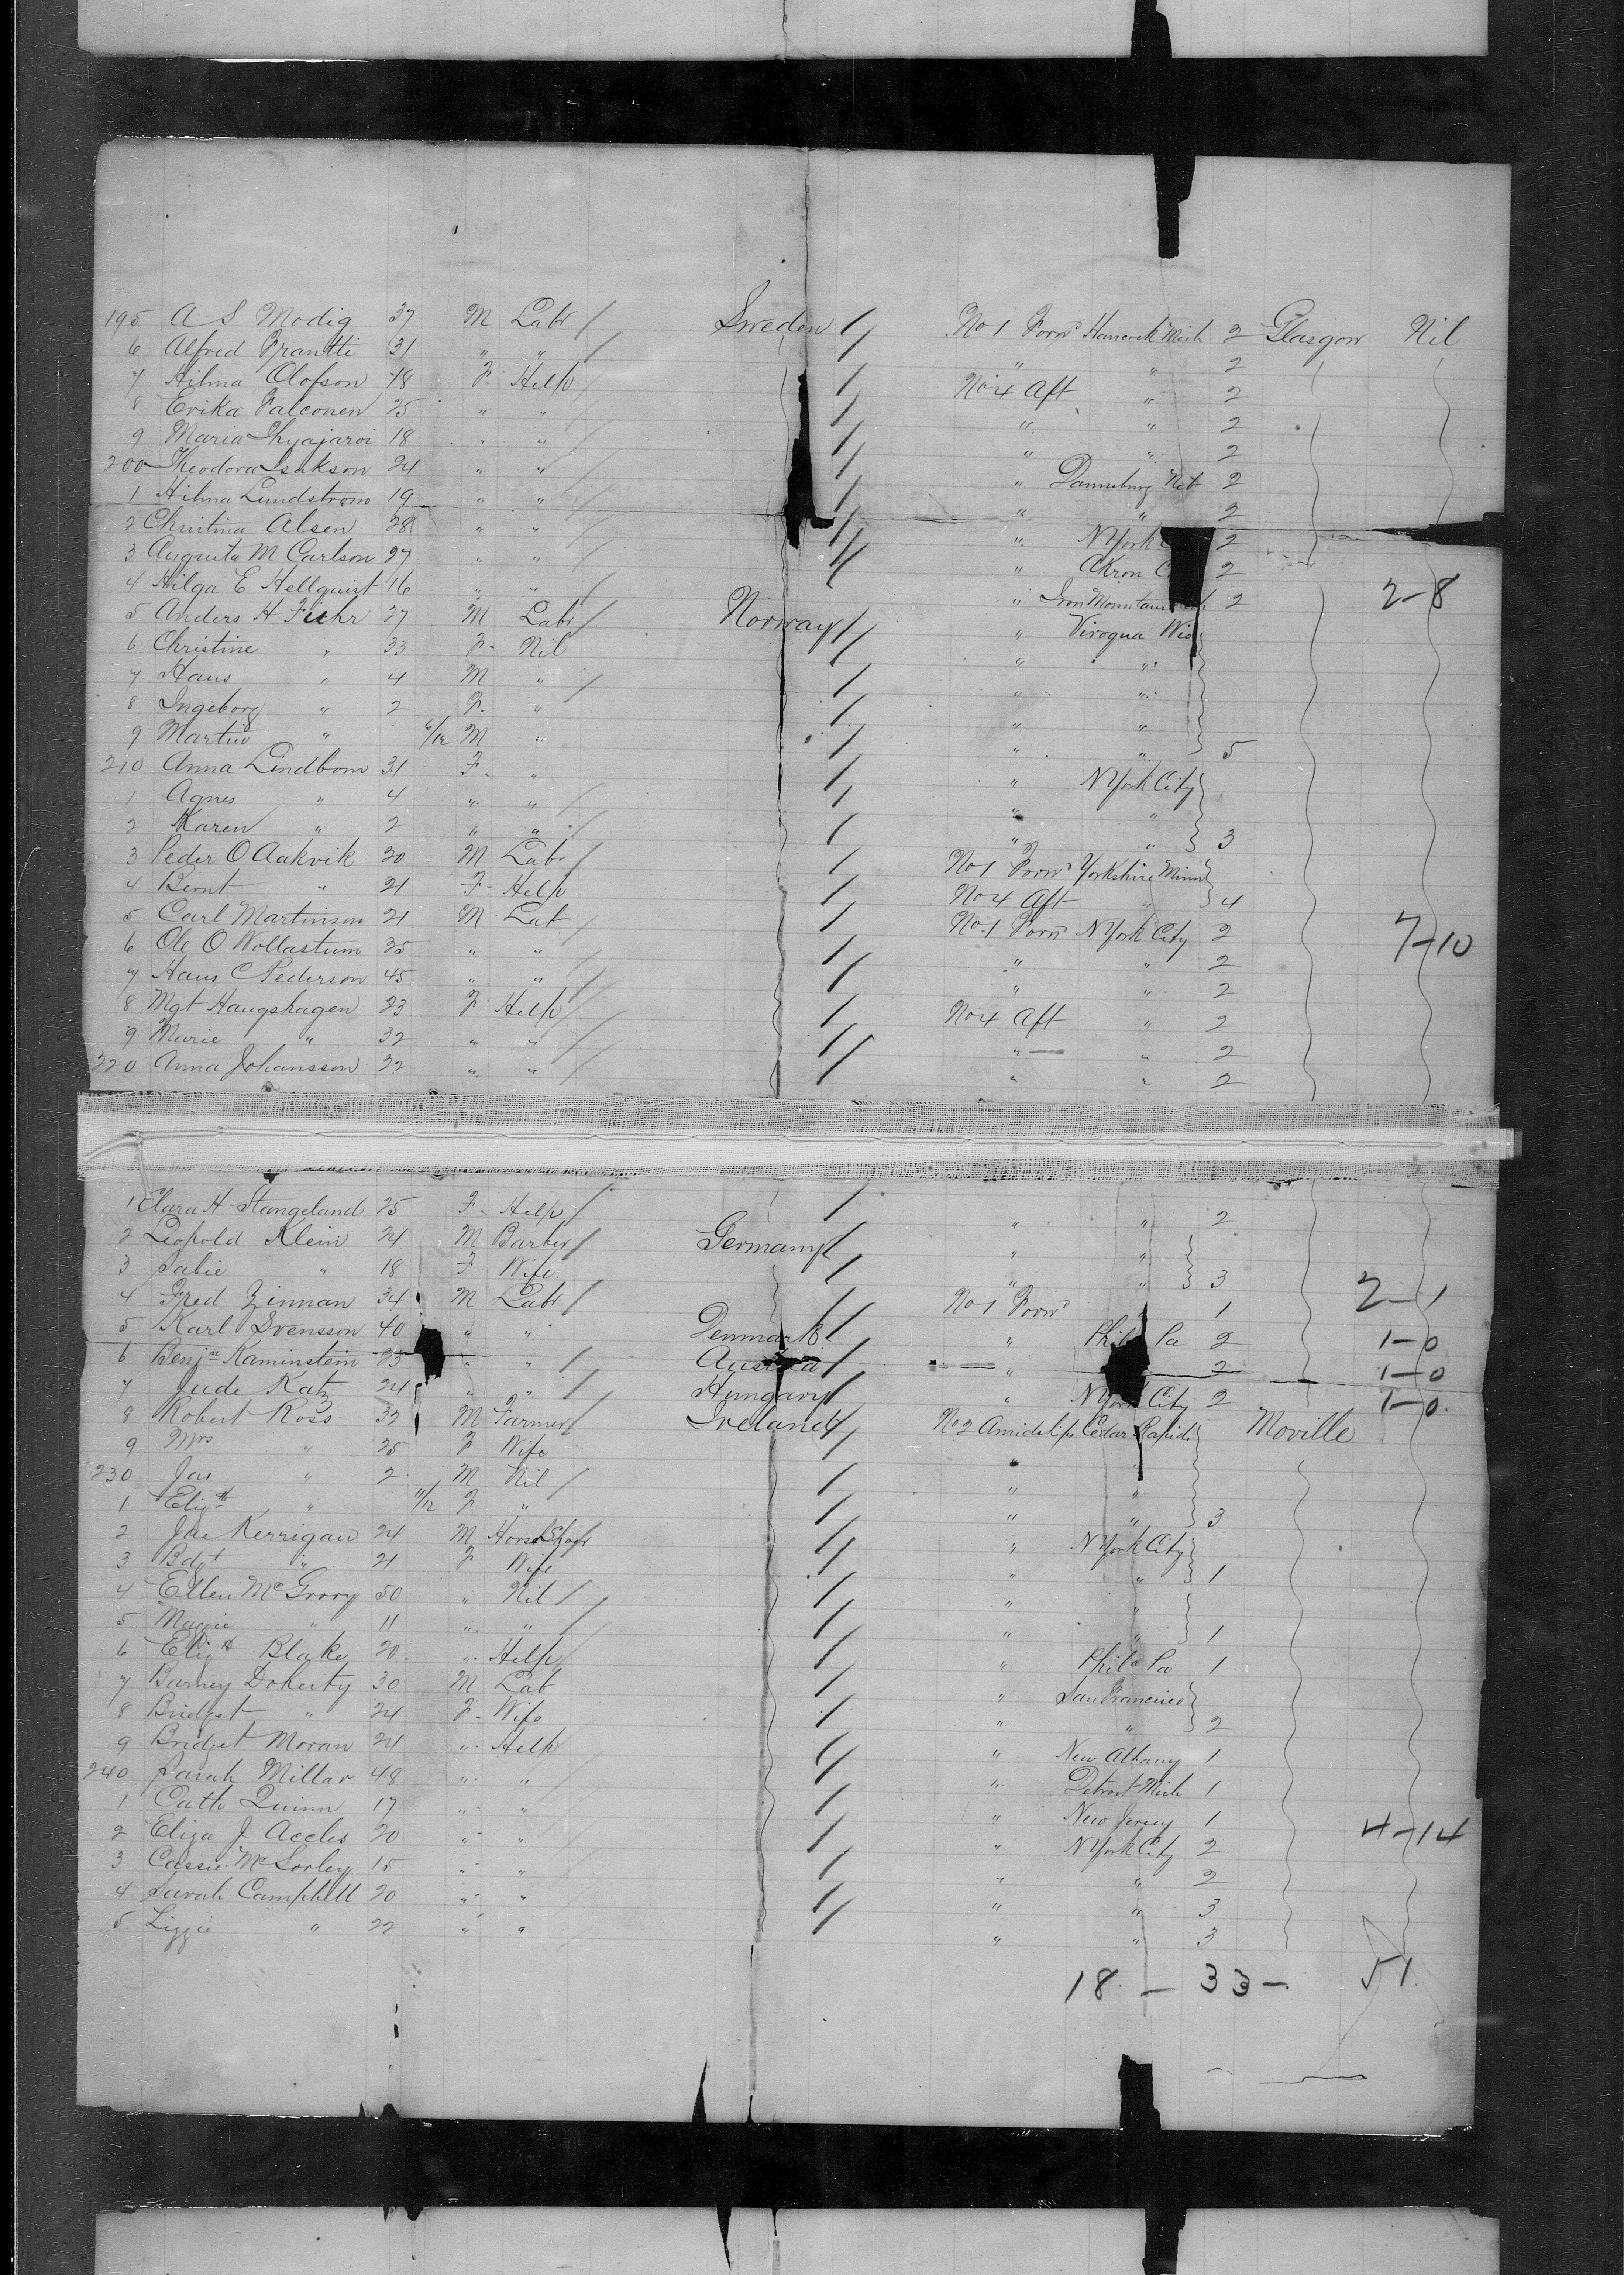 195 A S Modig 37 M Labr Sweden No 1 Forwd Hancock Mich 2 Glasgow Nil
6 Alfred Frantti 31 " " " " 2
7 Hilma Olofson 18 F Help No 4 Aft " 2
8 Erika Falconen 25 " " " " 2
9 Maria 18 " " " " 2
200 Theodora Isakson 24 " " " Danneburg Neb 2
1 Hilma Lundstrom 19 " " " " 2
2 Christina Alsen 28 " " " N York 2
3 Augusta M Carlson 27 " " " Akron 2
4 Hilga E Hellquist 16 " " " Iron Mountain 2 2-8
5 Anders H 27 M Labr Norway " Viroqua Wis
6 Christine " 33 F Nil " "
7 Hans " 4 M " " "
8 Ingeborg " 2 F " " "
9 Martin " 6/12 M " " " 5
210 Anna Lindbom 31 F " " N York City
1 Agnes " 4 " " " "
2 Karen " 2 " " " " 3
3 Peder O Aakvik 20 M Labr No 1 Forwd Yorkshire Minn
4 Bernt " 21 F Help No 4 Aft " 4
5 Carl Martinson 21 M Lab No 1 Forwd N York City 2 7-10
6 Ole O Wollastum 35 " " " " 2
7 Hans C Pederson 45 " " " " 2
8 Mgt Haugshagen 23 F Help No 4 Aft " 2
9 Marie " 32 " " " " 2
220 Anna Johansson 22 " " " " 2
1 Clara H Stangeland 25 F Help " " 2
2 Leopold Klein 24 M Barber Germany " "
3 Salie " 18 F Wife " " 3 2-1
4 Fred Zinman 34 M Labr No 1 Forwd " 1
5 Karl Svensson 40 " " Denmark " Phila Pa 2 1-0
6 Benjn Kaminstein 23 " " Austria " 2 1-0
7 Jude Katz 24 " " Hungary " N York City 2 1-0
8 Robert Ross 32 M Farmer Ireland No 2 Amidships Cedar Rapids Moville
9 Mrs " 25 F Wife " "
230 Jas " 2 M Nil " "
1 Elizth " 11/12 F " " " 3
2 Jas Kerrigan 24 M Horse Shoer " N York City
3 Bdgt " 21 F Wife " " 1
4 Ellen McGrory 50 " Nil " "
5 Maggie " 11 " " " " 1
6 Elizth Blake 20 " Help " Phila Pa 1
7 Barney Doherty 30 M Lab " San Francisco
8 Bridget " 24 F Wife " " 2
9 Bridget Moran 21 " Help " New Albany 1
240 Sarah Millar 48 " " " Detroit Mich 1
1 Cath Quinn 17 " " " New Jersey 1
2 Eliza J Accles 20 " " " N York City 2 4-14
3 Cassie McSorley 15 " " " " 2
4 Sarah Campbell 20 " " " " 3
5 Lizzie " 22 " " " " 3
18 - 33 - 51